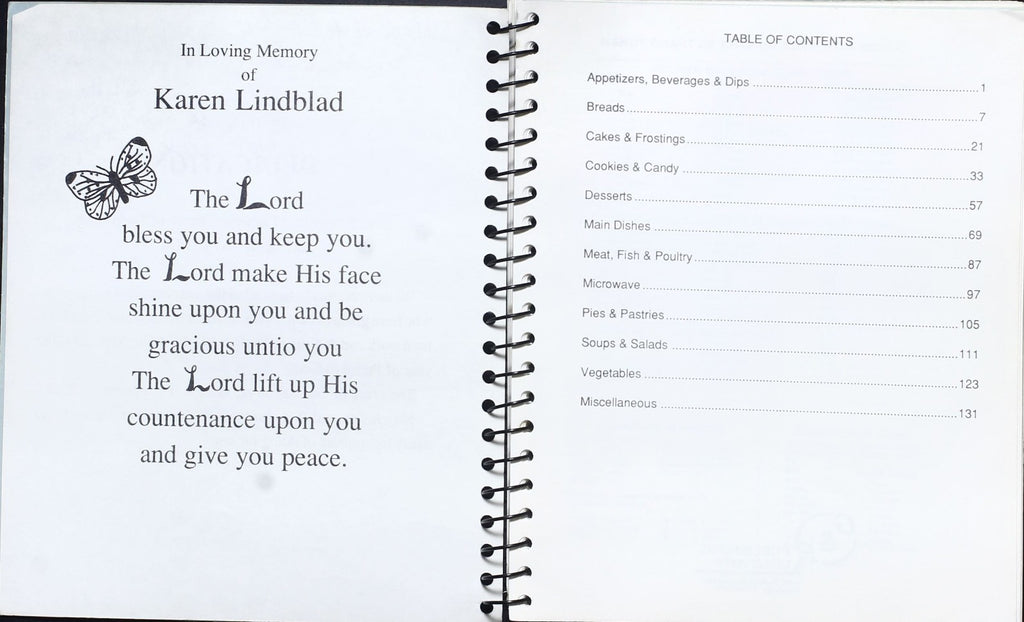 In Loving Memory
of
Karen Lindblad
The Lord
bless you and keep you.
The Lord make His face
shine upon you and be
gracious untio you
The Lord lift up His
countenance upon you
and give you peace.
TABLE OF CONTENTS
Appetizers, Beverages & Dips ........ 1
Breads ........ 7
Cakes & Frostings ........ 21
Cookies & Candy ........ 33
Desserts ........ 57
Main Dishes ........ 69
Meat, Fish & Poultry ........ 87
Microwave ........ 97
Pies & Pastries ........ 105
Soups & Salads ........ 111
Vegetables ........ 123
Miscellaneous ........ 131